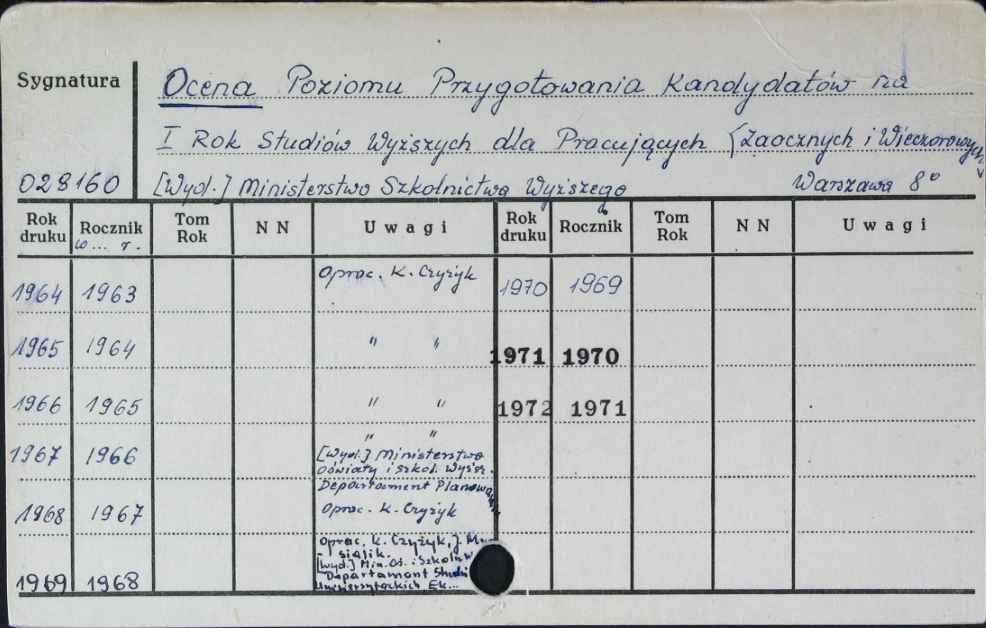 Sygnatura
Ocena Poziomu Przygotowania Kandydatów na
I Rok Studiów Wyższych dla Pracujących (Zaocznych i Wieczorowych)
028160 [Wyd.] Ministerstwo Szkolnictwa Wyższego Warszawa 8°
Rok druku Rocznik w... r. Tom Rok N N Uwagi Rok druku Rocznik Tom Rok N N Uwagi
1964 1963 Oprac. K. Czyżyk 1970 1969
1965 1964 " " 1971 1970
1966 1965 " " 1972 1971
" "
1967 1966 [Wyd.] Ministerstwo
Oświaty i szkol. Wyższ.
Departament Planowa
1968 1967 Oprac. K. Czyżyk
Oprac. K. Czyżyk, J. Mu-
sialik.
[Wyd.] Min. Oś. i Szkoln.
Departament Studi
1969 1968 Uniwersyteckich Ek...